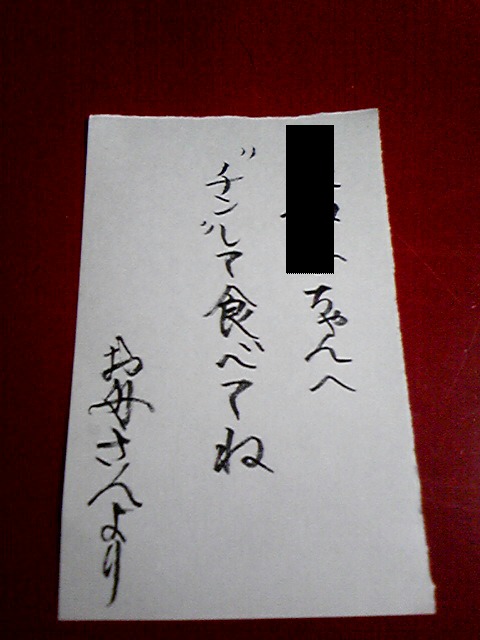 ちゃんへ
"チン"して食べてね
お母さんより